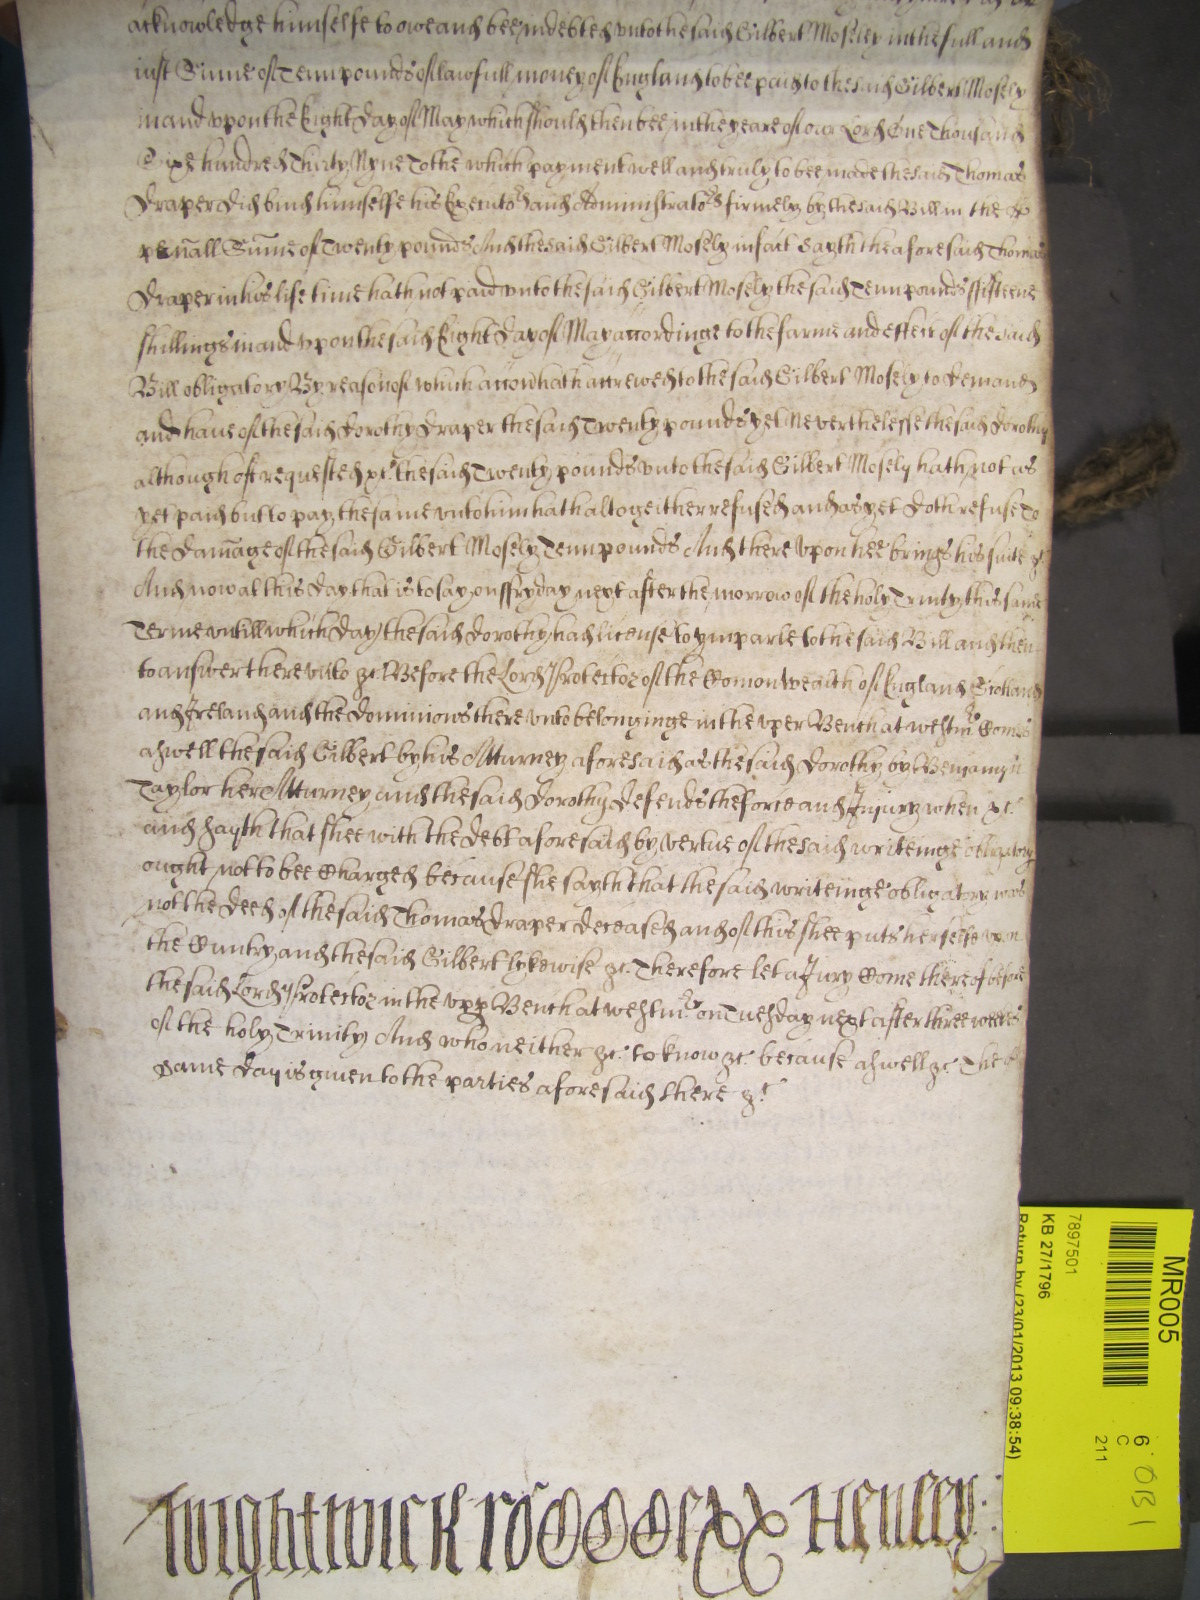 acknowledge himselfe to owe and bee indebted vnto the said Gilbert Mosley in the full and
iust Sume of Tenn pounds of lawfull money of England to bee paid to the said Gilbert Mosely
in and vpon the Eight day of May which should then bee in the yeare of our Lord One Thousand
Sixe hundred Thirty Nyne To the which payment well and truly to bee made the said Thomas
Draper did bind himselfe his Executors and Administrators firmely by the said Bill in the
penall Sume of Twenty pounds And the said Gilbert Mosely in fact sayth the aforesaid Thomas
Draper in his life time hath not paid vnto the said Gilbert Mosely the said Tenn pounds ffifteene
shillings in and vpon the said Eight day of May accordinge to the forme and effect of the said
Bill obligatory By reason of which accon hath accrewed to the said Gilbert Mosely to demand
and haue of the said Dorothy Draper the said Twenty pounds yet Neverthelesse the said Dorothy
although oft requested &c the said Twenty pounds vnto the said Gilbert Mosely hath not as
yet paid but to pay the same vnto him hath altogeither refused and as yet doth refuse To
the damage of the said Gilbert Mosely Tenn pounds And there vpon hee brings his suite &c
And now at this day that is to say on ffryday next after the morrow of the holy Trinity this same
Terme vntill which day the said Dorothy had license to ymparle to the said Bill and then
to answer there vnto &c Before the Lord Protector of the Comonwealth of England Scotland
and Ireland and the dominions there vnto belonginge in the vper Bench at Westmr Comes
aswell the said Gilbert by his Atturney aforesaid as the said Dorothy by Benjamyn
Taylor her Atturney and the said Dorothy defends the force and Injury when &c
and sayth that shee with the debt aforesaid by vertue of the said writeinge obligatory
ought not to bee Charged because she sayth that the said writeinge obligatory was
not the deed of the said Thomas Draper deceased and of this shee puts herselfe vpon
the Cuntry and the said Gilbert lykewise &c Therefore let a Jury Come thereof before
the said Lord Protector in the vpp Bench at westmr on Tuesday next after three weekes
of the holy Trinity And who neither &c to know &c because aswell &c The
same day is given to the parties aforesaid there &c
Wightwick Henley
MR005
7897501
KB 27/1796
Return by (23/01/2013 09:38:54)
6
C
211